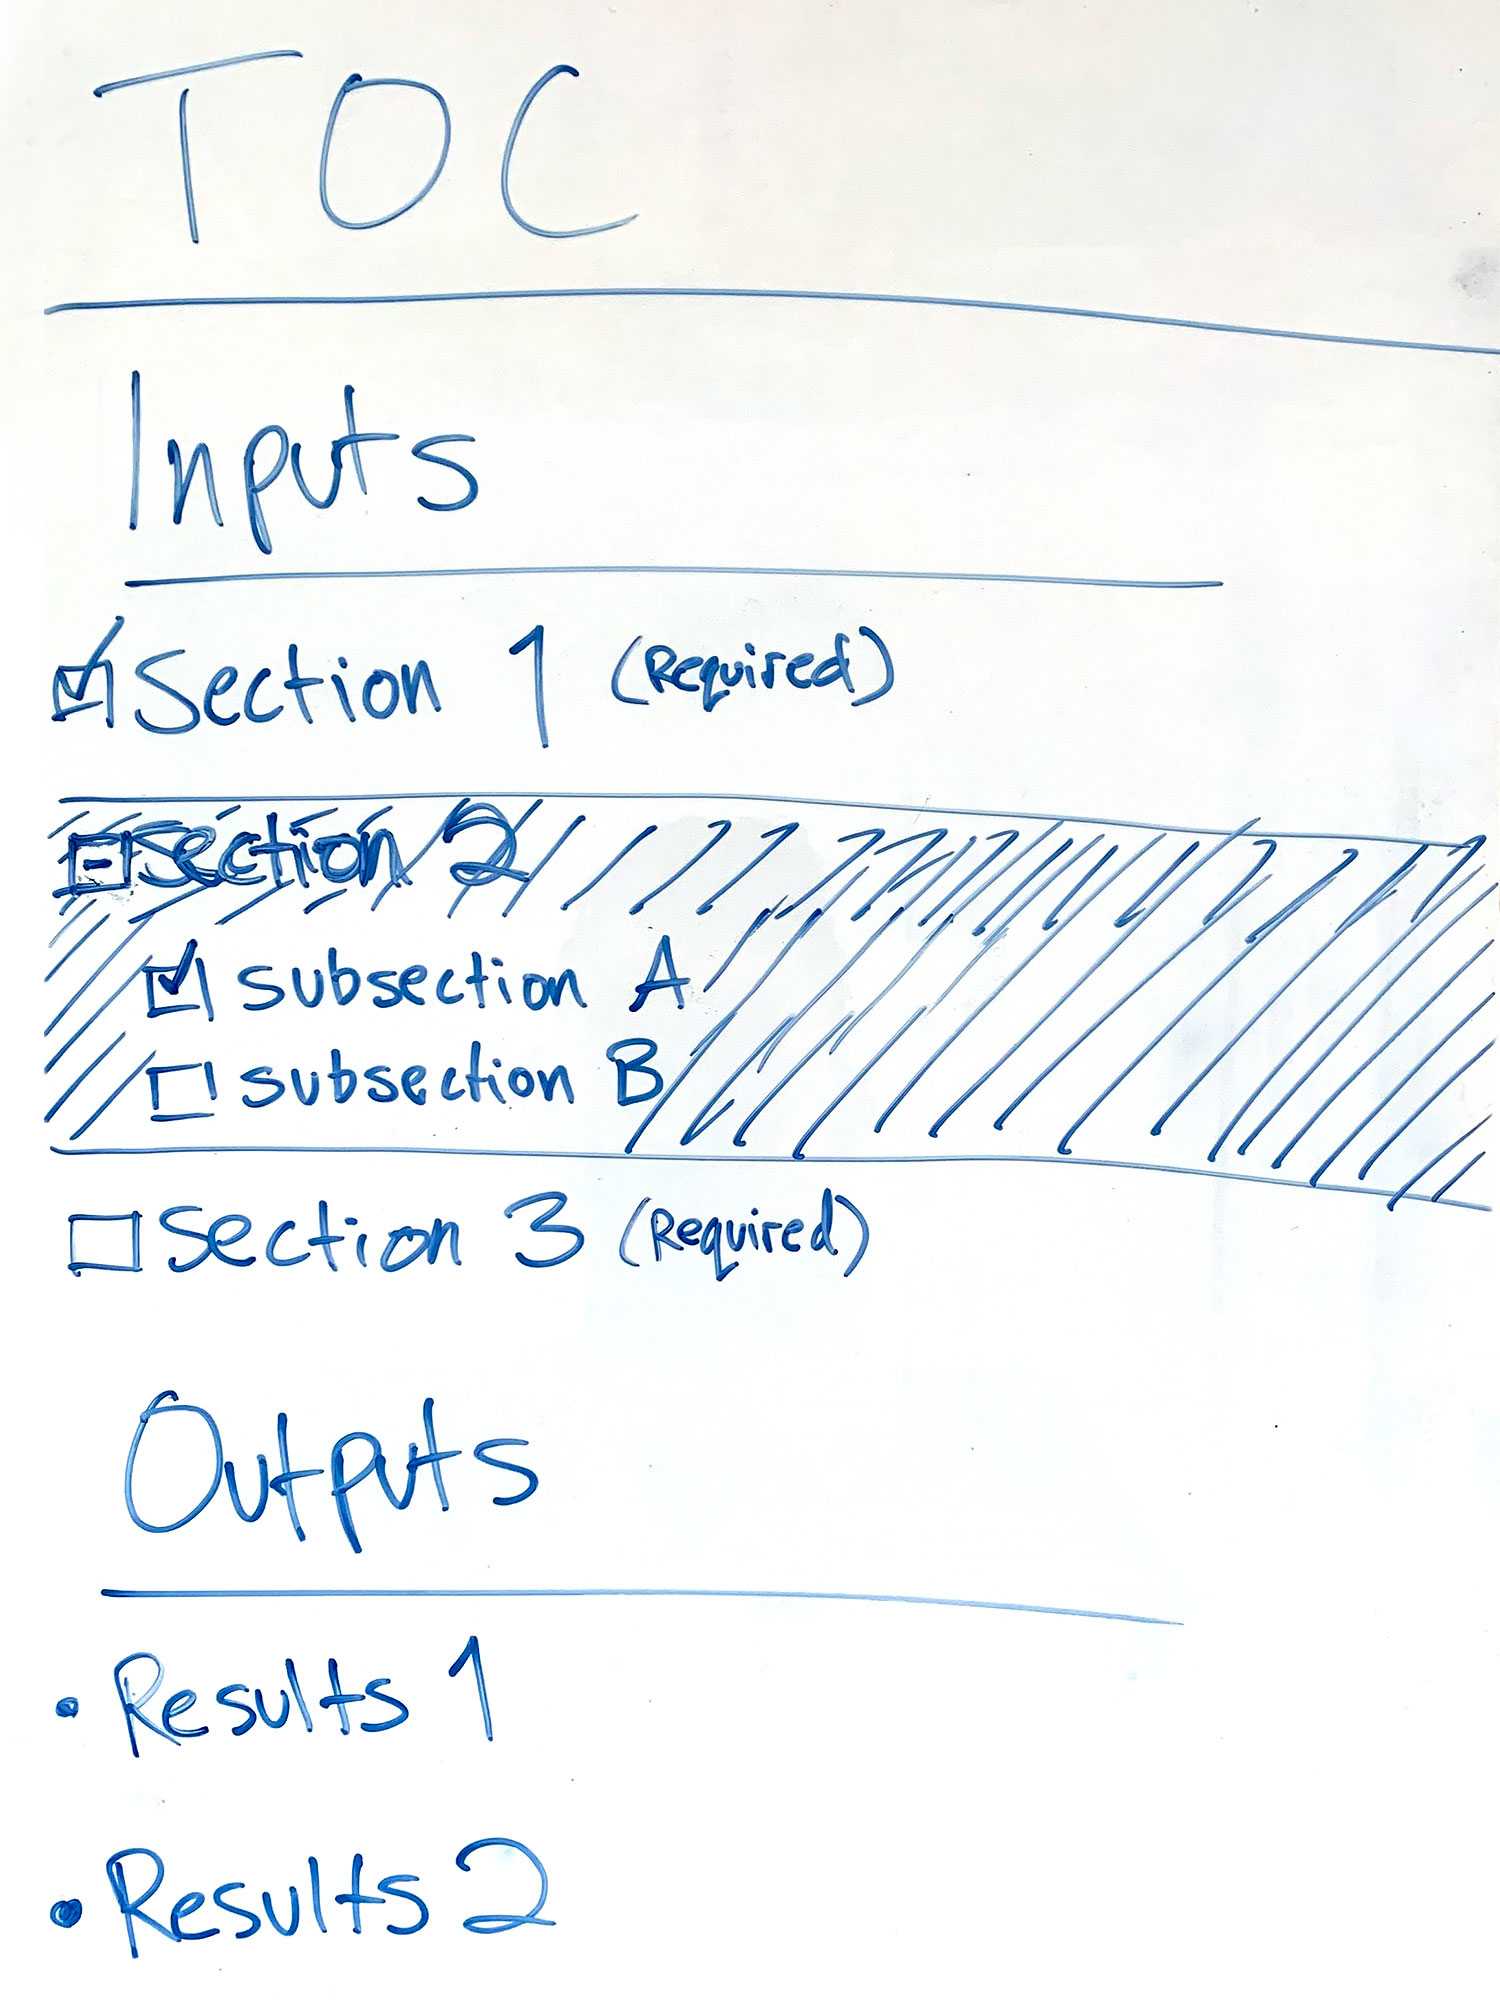 TOC
Inputs
☑ Section 1 (Required)
⊟ Section 2
☑ subsection A
☐ subsection B
☐ Section 3 (Required)
Outputs
• Results 1
• Results 2